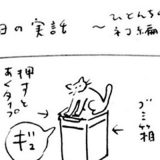 日の実話 〜ひとんち
ネコ編
ゴミ箱
押すと
あくタイプ
ギュ